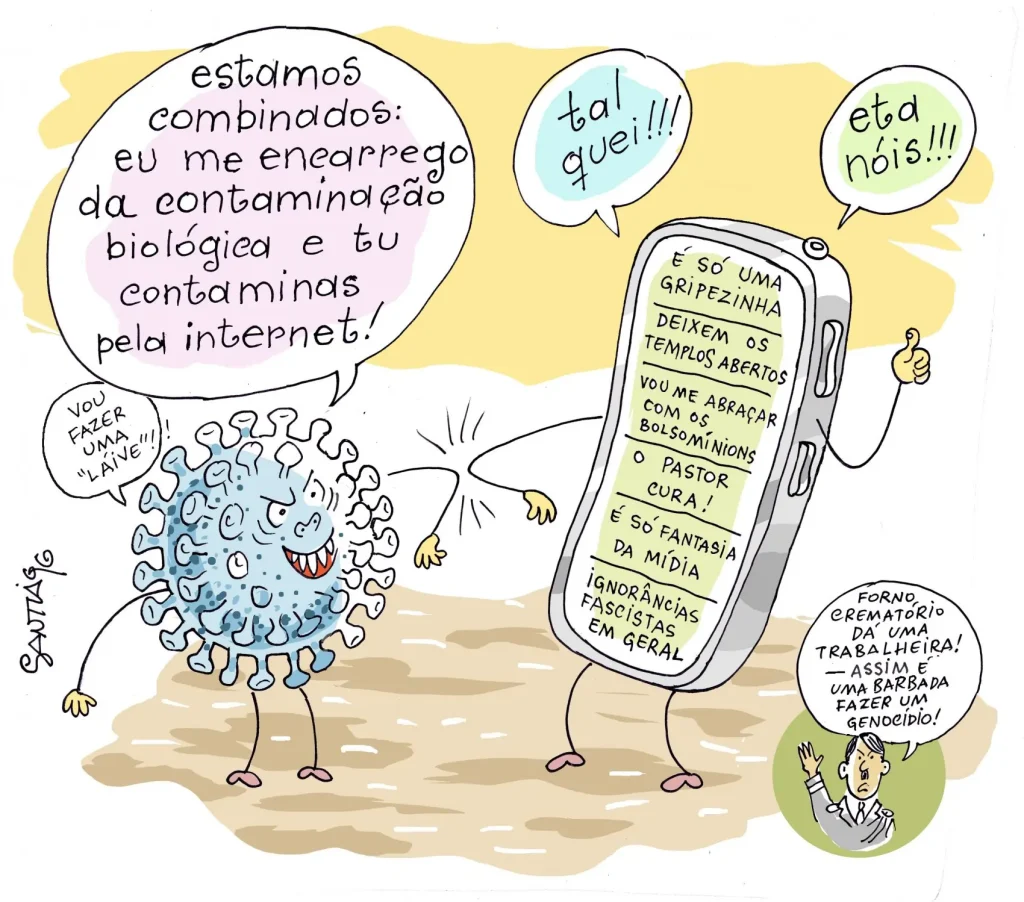 estamos
combinados:
eu me encarrego
da contaminação
biológica e tu
contaminas
pela internet!
tal
quei!!!
eta
nóis!!!
VOU
FAZER
UMA
"LAIVE"!!
É SÓ UMA
GRIPEZINHA
DEIXEM OS
TEMPLOS ABERTOS
VOU ME ABRAÇAR
COM OS
BOLSOMÍNIONS
O PASTOR
CURA!
É SÓ FANTASIA
DA MÍDIA
IGNORÂNCIAS
FASCISTAS
EM GERAL
FORNO
CREMATÓRIO
DÁ UMA
TRABALHEIRA!
— ASSIM É
UMA BARBADA
FAZER UM
GENOCÍDIO!
SANTIAGO